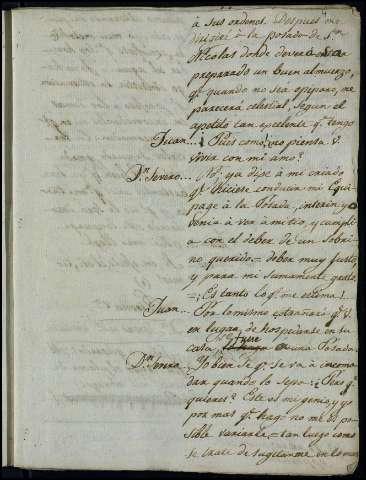 à sus ordenes. Despues me
dirigiré à la posada de Sn.
Nicolas donde deverà
preparado un buen almuerzo,
qe. quando no sea opiparo, me
parecerá celestial, segun el
apetito tan excelente qe. tengo
Juan... ¿Pues como? ¿no piensa V.
vivir con mi amo?
Dn. Severo... No, ya dixe à mi criado
qe. hiciese conducir mi Equi
page à la Posada, interin yo
venia à ver à mi tio, y cumplia
con el deber de un Sobri
no querido = deber muy justo,
y para mi sumamente grato
= ¡Es tanto lo qe. me estima!
Juan... Por lo mismo estrañará qe. V.
en lugar de hospedarse en su
casa se fuese à una Posada.
Dn. Severo... Yo bien se qe. se va à incomo
dar quando lo sepa: ¿Pero qe.
quieres? Este es mi genio, y yo
por mas qe. hago no me es po
sible variarle = tan luego como
se trate de sugetarme en lo mas